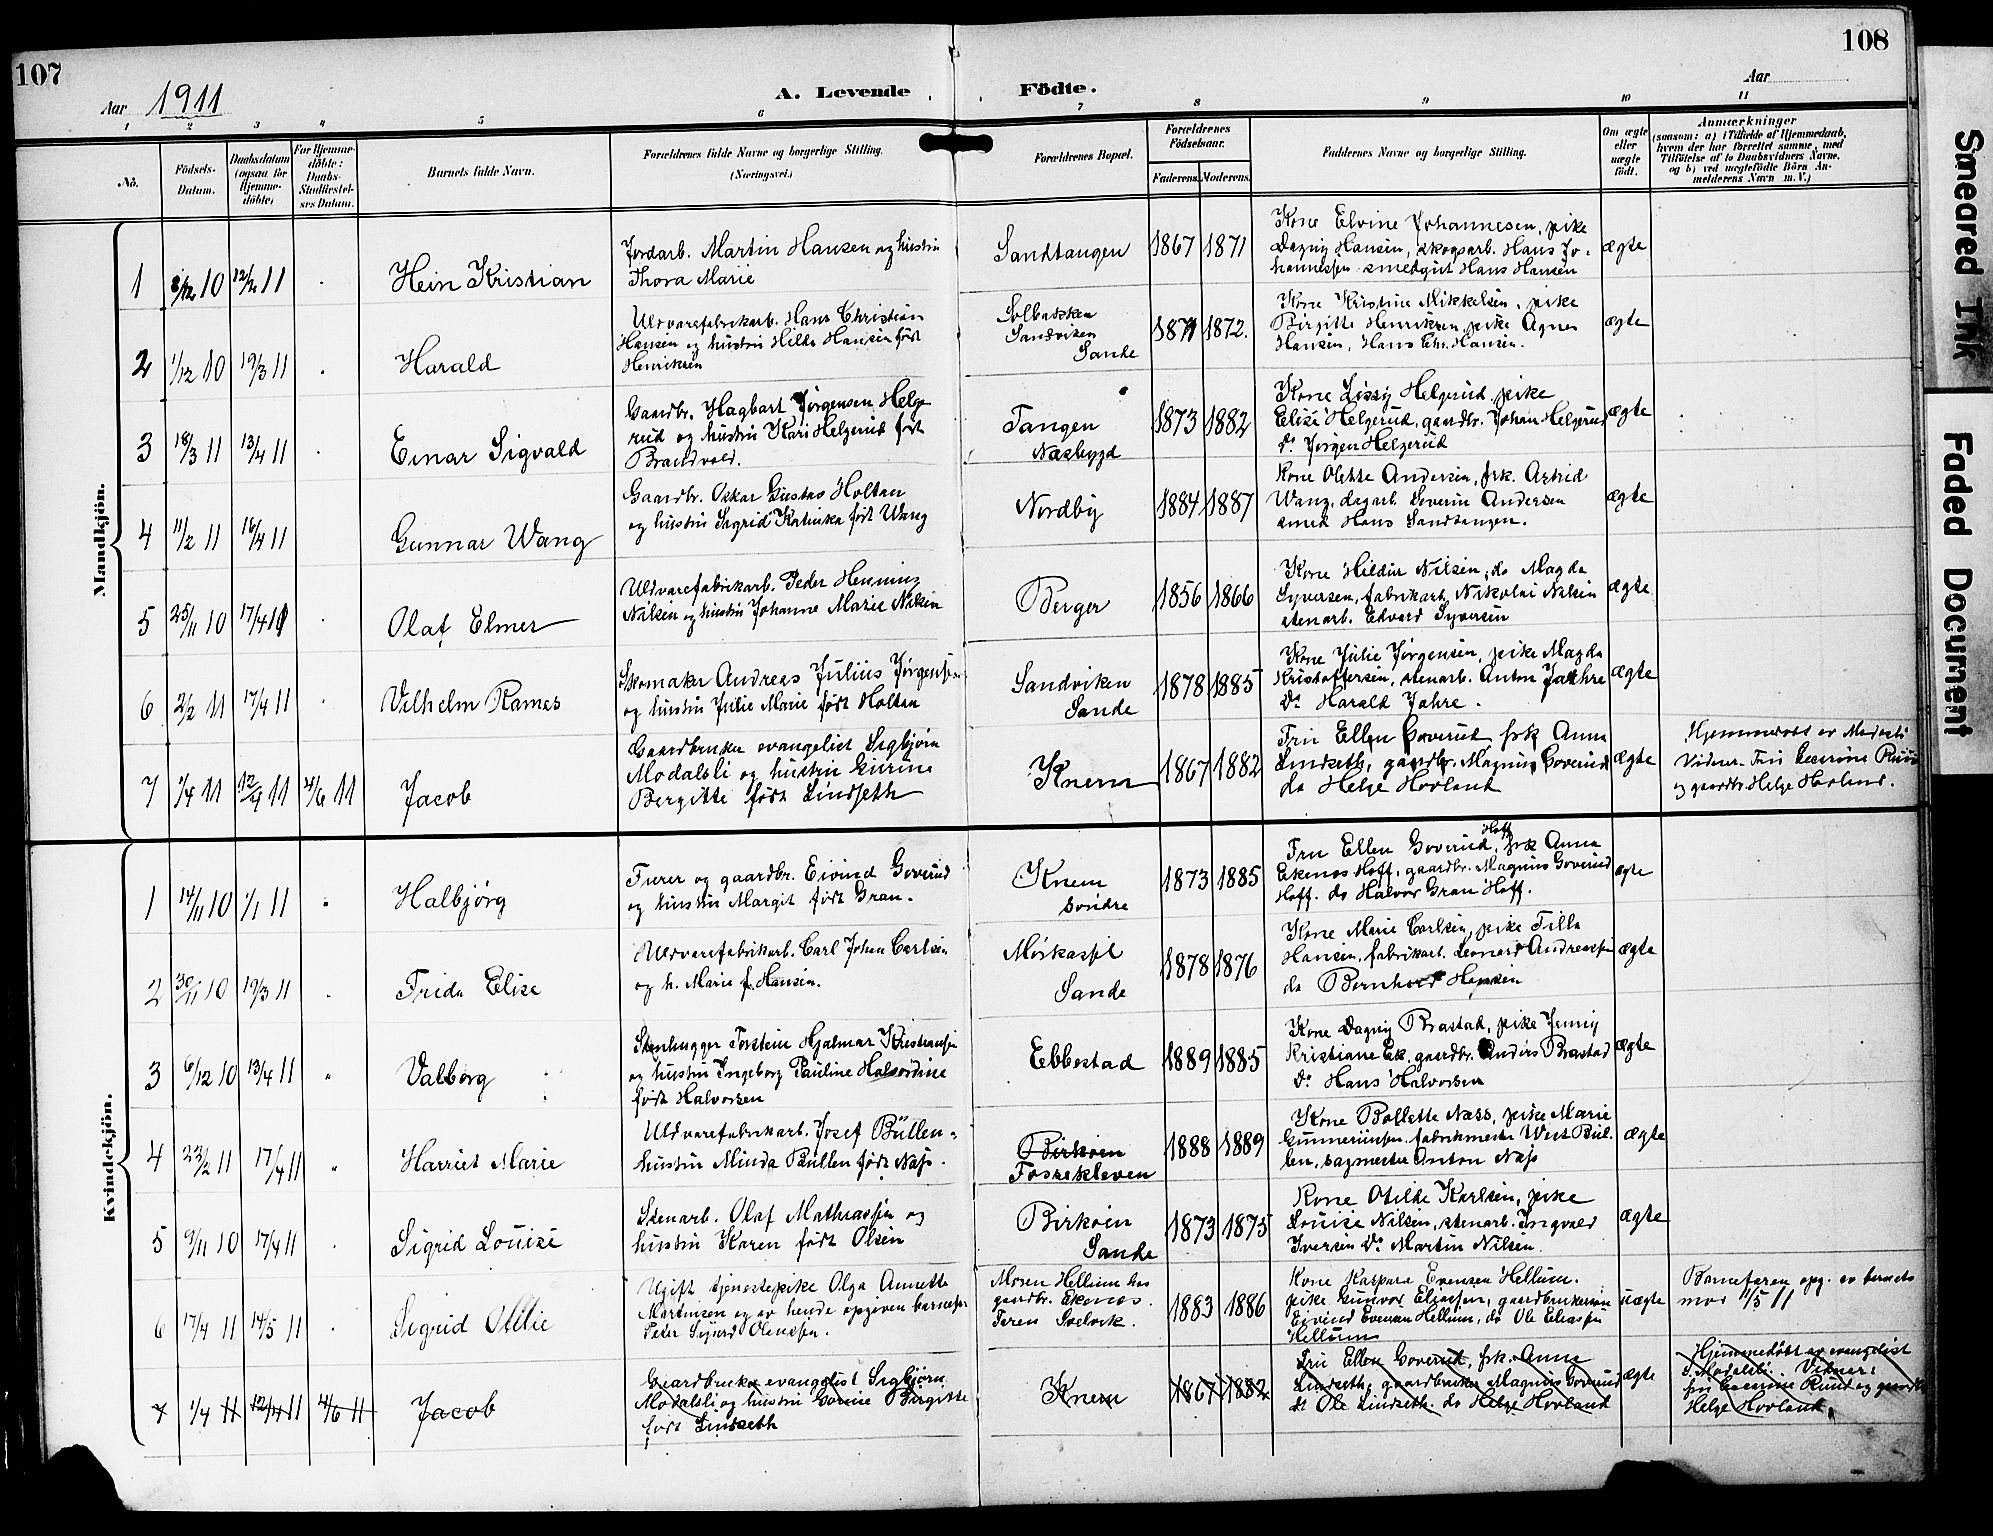 107
108
Aar 1911
A. Levende
Födte.
Aar
1
2
3
4
5
6
7
8
9
10
11
No.
Födsels-
Datum.
Daabsdatum
(ogsaa for
Hjemme-
döbte)
For Hjemme-
döbte:
Daabs-
Stadfæstel-
ses Datum.
Barnets fulde Navn.
Forældrenes fulde Navne og borgerlige Stilling.
(Næringsvei.)
Forældrenes Bopæl.
Forældrenes
Födselsaar.
Faderens.
Moderens.
Faddernes Navne og borgerlige Stilling.
Om ægte
eller
uægte
födt.
Anmærkninger
(saasom: a) i Tilfælde af Hjemmedaab,
hvem der har forrettet samme, med
Tilföielse af to Daabsvidners Navne,
og b) ved uægtefödte Börn An-
melderens Navn m. V.)
Mandkjön.
1 8/12 10 12/2 11 Hein Kristian
Jordarb. Martin Hansen og hustru
Thora Marie
Sandtangen 1867 1871
Kone Elvine Johannesen, pike
Dagny Hansen, skogsarb. Hans Jo-
hannessen smedgut Hans Hansen
ægte
2 1/12 10 19/3 11 Harald
Uldvarefabrikarb. Hans Christian
Hansen og hustru Hilda Hansen født
Henriksen
Solbakken
Sandviken
Sande
1871 1872.
Kone Kristine Mikkelsen, pike
Birgitte Henriksen, pike Agnes
Hansen, Hans Chr. Hansen.
ægte
3 18/3 11 13/4 11 Einar Sigvald
Gaardbr. Hagbart Jørgensen Helge
rud og hustru Kari Helgerud født
Brandvold.
Tangen
Næsbygd
1873 1882
Kone Lissy Helgerud, pike
Elise Helgerud, gaardbr. Johan Helgerud
Do Jørgen Helgerud
ægte
4 11/2 11 16/4 11 Gunnar Wang
Gaardbr. Oskar Gustav Holtan
og hustru Sigrid Katinka født Wang
Nordby 1884 1887
Kone Olette Andersen, frk. Astrid
Wang, dagarb. Severin Andersen
smed Hans Sandtangen.
ægte
5 25/11 10 17/4 11 Olaf Elmer
Uldvarefabrikarb. Peder Henning
Nilsen og hustru Johanne Marie Nilsen
Berger 1856 1866
Kone Hildur Nilsen, do Magda
Syversen, fabrikarb. Nikolai Nilsen
stenarb. Edvard Syversen
ægte
6 2/2 11 17/4 11 Vilhelm Rames
Skomaker Andreas Julius Jørgensen
og hustru Julie Marie født Holtan
Sandviken
Sande
1878 1885
Kone Julie Jørgensen, pike Magda
Kristoffersen, stenarb. Anton Jahre
Do Harald Jahre.
ægte
7 1/4 11 12/4 11 4/6 11 Jacob
Gaardbruker evangelist Sigbjørn
Modalsli og hustru Gurine
Bergitte født Lindseth
Knem 1867 1882
Fru Ellen Goverud, frk Anna
Lindseth, gaardbr. Magnus Goverud
do Helge Hovland
ægte
Hjemmedøbt av Modalsli
Vidner: Fru Ruud
og gaardbr. Helge Hovland.
Kvindekjön.
1 14/11 10 1/1 11 Halbjørg
Furer og gaardbr. Eivind Goverud
og hustru Margit født Gran.
Knem
Søndre
1873 1885
Fru Ellen Goverud, Hoff frk Anna
Ekenes Hoff, gaardbr. Magnus Goverud
Hoff. do Halvor Gran Hoff.
ægte
2 30/11 10 19/3 11 Frida Elise
Uldvarefabrikarb. Carl Johan Carlsen
og h. Marie f. Hansen.
Mørkassel
Sande
1878 1876
Kone Marie Carlsen, pike Tilla
Hansen, fabrikarb. Leonard Andreassen
do Bernhard Hansen
ægte
3 6/12 10 13/4 11 Valborg
Stenhugger Torstein Hjalmar Kristiansen
og hustru Ingeborg Pauline Halvordine
født Halvorsen
Ebbestad 1889 1885
Kone Dagny Brastad, pike Jenny
Kristiane Ek, gaardbr. Anders Brastad
Do Hans Halvorsen
ægte
4 22/2 11 17/4 11 Harriet Marie
Uldvarefabrikarb. Josef Büllen-
hustru Minda Bullen født Næss.
Birkøen
Fossekleven
1888 1889
Kone Bollette Næss, pike Marie
fabrikmester West Bül-
len, sagmester Anton Næss
ægte
5 9/11 10 17/4 11 Sigrid Louise
Stenarb. Olaf Mathiassen og
hustru Karen født Olsen
Birkøen
Sande
1873 1875
Kone Otilde Karlsen, pike
Louise Nilsen, stenarb. Ingvald
Iversen Do Martin Nilsen.
ægte
6 17/4 11 14/5 11 Sigrid Otilie
Ugift tjenestepike Olga Annette
Martinsen og av hende opgiven barnefar
Peter Sigurd Olaussen.
Moren Hellum hos
gaardbr. Ekenes.
Faren Svelvik.
1883 1886
Kone Kaspara Evensen Hellum.
pike Gunvor Eliassen, gaardbrukerne
Eivind Evensen Hellum, do Ole Eliassen
Hellum
uægte
Barnefaren opg. av barnets
mor 11/5 11
7 1/4 11 12/4 11 4/6 11 Jacob
Gaardbruker evangelist Sigbjørn
Modalsli og hustru Gurine Birgitte
født Lindseth
Knem 1867 1882
Fru Ellen Goverud, frk. Anna
Lindseth, gaardbruker Magnus Goverud
do Ole Lindseth. do Helge Hovland
ægte
Hjemmedøbt av evangelist
S. Modalsli. Vidner:
fru Ruud og gaardbr
Helge Hovland.
Smeared Ink
Faded Document